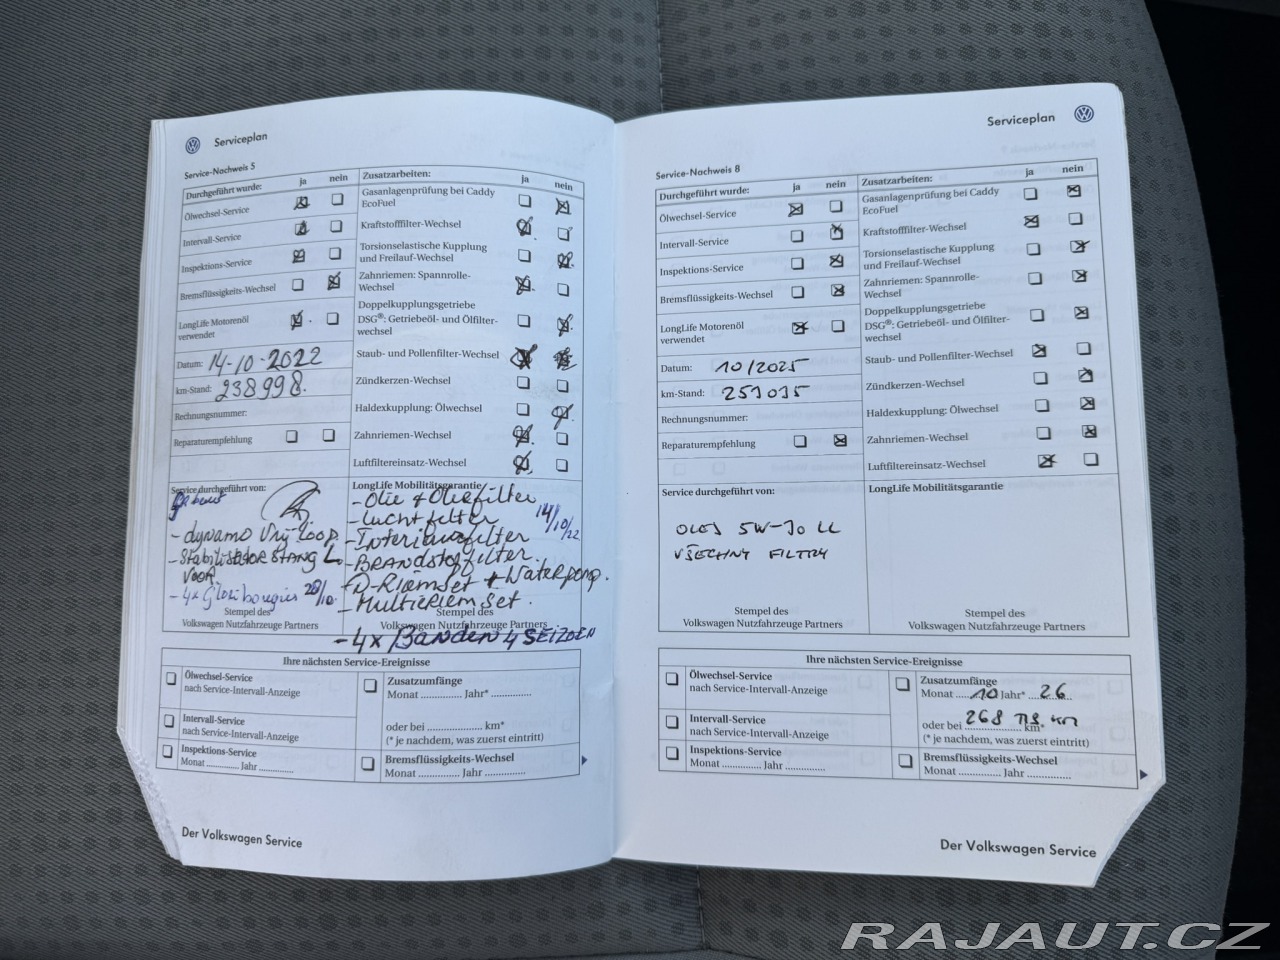 Serviceplan
Service-Nachweis 5
Durchgeführt wurde: ja nein
Ölwechsel-Service
Intervall-Service
Inspektions-Service
Bremsflüssigkeits-Wechsel
LongLife Motorenöl
verwendet
Datum: 14-10-2022
km-Stand: 238998.
Rechnungsnummer:
Reparaturempfehlung
Zusatzarbeiten: ja nein
Gasanlagenprüfung bei Caddy
EcoFuel
Kraftstofffilter-Wechsel
Torsionselastische Kupplung
und Freilauf-Wechsel
Zahnriemen: Spannrolle-
Wechsel
Doppelkupplungsgetriebe
DSG®: Getriebeöl- und Ölfilter-
wechsel
Staub- und Pollenfilter-Wechsel
Zündkerzen-Wechsel
Haldexkupplung: Ölwechsel
Zahnriemen-Wechsel
Luftfiltereinsatz-Wechsel
Service durchgeführt von:
- dynamo Vrijloop
- Stabilisator STANG L
VOOR
- 4x Gloeibougies 20/10.
Stempel des
Volkswagen Nutzfahrzeuge Partners
LongLife Mobilitätsgarantie
- Olie & Oliefilter
- Luchtfilter 14/10/22
- Interieurfilter
- BRANDstoffilter.
- D-Riemset + Waterpomp.
- Multieriem set.
Stempel des
Volkswagen Nutzfahrzeuge Partners
- 4x Banden 4 SEIZOEN
Ihre nächsten Service-Ereignisse
Ölwechsel-Service
nach Service-Intervall-Anzeige
Intervall-Service
nach Service-Intervall-Anzeige
Inspektions-Service
Monat ............ Jahr ............
Zusatzumfänge
Monat .............. Jahr* ..............
oder bei ................... km*
(* je nachdem, was zuerst eintritt)
Bremsflüssigkeits-Wechsel
Monat .............. Jahr ..............
Der Volkswagen Service
Serviceplan
Service-Nachweis 8
Durchgeführt wurde: ja nein
Ölwechsel-Service
Intervall-Service
Inspektions-Service
Bremsflüssigkeits-Wechsel
LongLife Motorenöl
verwendet
Datum: 10/2025
km-Stand: 253035
Rechnungsnummer:
Reparaturempfehlung
Zusatzarbeiten: ja nein
Gasanlagenprüfung bei Caddy
EcoFuel
Kraftstofffilter-Wechsel
Torsionselastische Kupplung
und Freilauf-Wechsel
Zahnriemen: Spannrolle-
Wechsel
Doppelkupplungsgetriebe
DSG®: Getriebeöl- und Ölfilter-
wechsel
Staub- und Pollenfilter-Wechsel
Zündkerzen-Wechsel
Haldexkupplung: Ölwechsel
Zahnriemen-Wechsel
Luftfiltereinsatz-Wechsel
Service durchgeführt von:
OLEJ 5W-30 LL
VŠECHNY FILTRY
Stempel des
Volkswagen Nutzfahrzeuge Partners
LongLife Mobilitätsgarantie
Stempel des
Volkswagen Nutzfahrzeuge Partners
Ihre nächsten Service-Ereignisse
Ölwechsel-Service
nach Service-Intervall-Anzeige
Intervall-Service
nach Service-Intervall-Anzeige
Inspektions-Service
Monat .............. Jahr ..............
Zusatzumfänge
Monat ..... 10 Jahr* .. 26 ......
oder bei 268 km*
(* je nachdem, was zuerst eintritt)
Bremsflüssigkeits-Wechsel
Monat .............. Jahr ..............
Der Volkswagen Service
RAJAUT.CZ